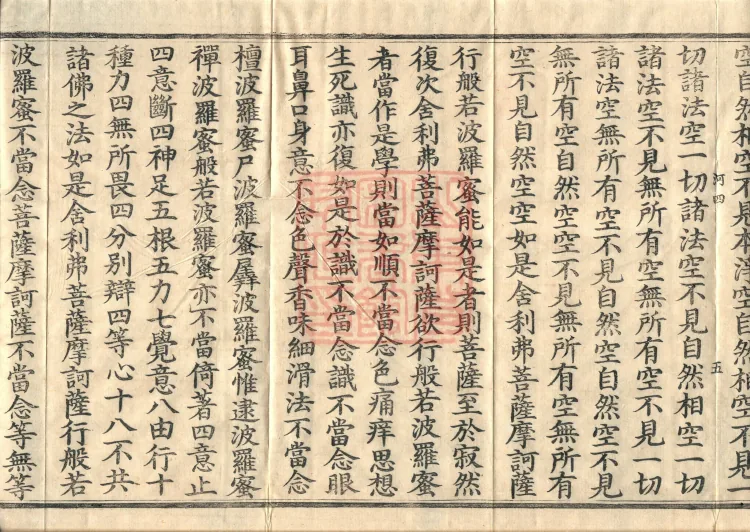 空自然相空不見本淨空自然相空不見一
河四 五
切諸法空一切諸法空不見自然相空一切
諸法空不見無所有空無所有空不見一切
諸法空無所有空不見自然空自然空不見
無所有空自然空空不見無所有空無所有
空不見自然空空如是舍利弗菩薩摩訶薩
行般若波羅蜜能如是者則菩薩至於寂然
復次舍利弗菩薩摩訶薩欲行般若波羅蜜
者當作是學則當如順不當念色痛痒思想
生死識亦復如是於識不當念識不當念眼
耳鼻口身意不念色聲香味細滑法不當念
檀波羅蜜尸波羅蜜羼波羅蜜惟逮波羅蜜
禪波羅蜜般若波羅蜜亦不當倚著四意止
四意斷四神足五根五力七覺意八由行十
種力四無所畏四分別辯四等心十八不共
諸佛之法如是舍利弗菩薩摩訶薩行般若
波羅蜜不當念菩薩摩訶薩不當念等無等